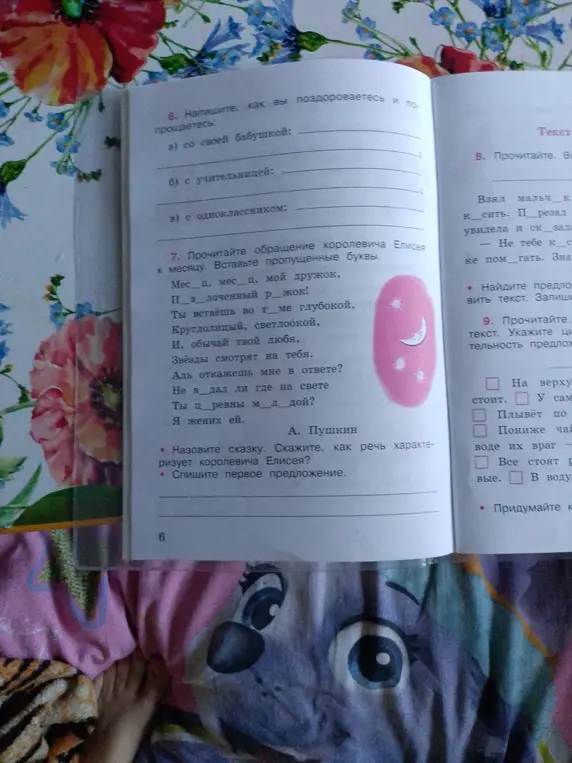 6. Напишите, как вы поздороваетесь и по-
прощаетесь:
а) со своей бабушкой:
;
б) с учительницей:
;
в) с одноклассником:
7. Прочитайте обращение королевича Елисея
к месяцу. Вставьте пропущенные буквы.
Мес_ц, мес_ц, мой дружок,
П_з_лоченный р_жок!
Ты встаёшь во т_ме глубокой,
Круглолицый, светлоокой,
И, обычай твой любя,
Звёзды смотрят на тебя.
Аль откажешь мне в ответе?
Не в_дал ли где на свете
Ты ц_ревны м_л_дой?
Я жених ей.
А. Пушкин
• Назовите сказку. Скажите, как речь характе-
ризует королевича Елисея?
• Спишите первое предложение.
6
Текст
8. Прочитайте. В
Взял мальч_к
к_сить. П_резал
увидела и ск_зал
— Не тебе к_с
ке пом_гать. Зна
• Найдите предло
вить текст. Запиш
9. Прочитайте.
текст. Укажите ци
тельность предлож
На верху
стоит. У сам
Плывёт по
Пониже чай
воде их враг —
Все стоят р
вые. В воду
• Придумайте к